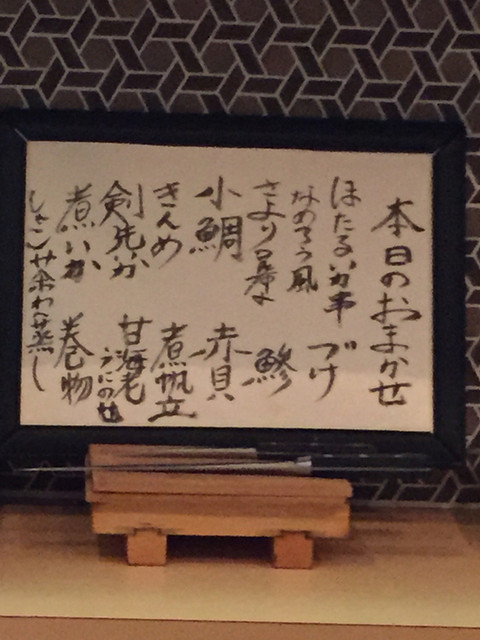 本日のおまかせ
ほたるいか串
なめろう風
さより昆布
小鯛
きんめ
剣先いか
煮いか
づけ
鯵
赤貝
煮帆立
甘海老
うにのせ
巻物
茶わん蒸し